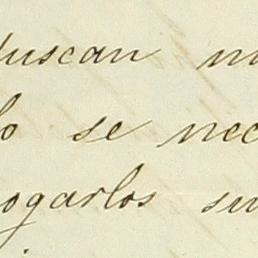 buscan m
lo se nec
ogarlos su